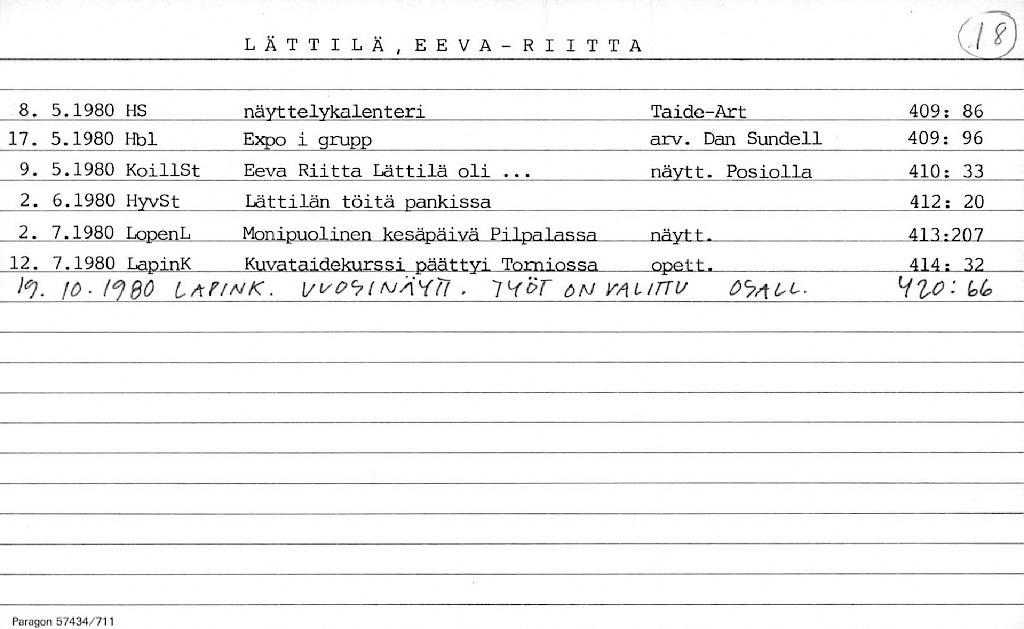 LÄTTILÄ, EEVA-RIITTA 18
8. 5.1980 HS näyttelykalenteri Taide-Art 409: 86
17. 5.1980 Hbl Expo i grupp arv. Dan Sundell 409: 96
9. 5.1980 KoillSt Eeva Riitta Lättilä oli ... näytt. Posiolla 410: 33
2. 6.1980 HyvSt Lättilän töitä pankissa 412: 20
2. 7.1980 LopenL Monipuolinen kesäpäivä Pilpalassa näytt. 413:207
12. 7.1980 LapinK Kuvataidekurssi päättyi Torniossa opett. 414: 32
19. 10. 1980 LAPINK. VUOSINÄYTT. TYÖT ON VALITTU OSALL. 420: 66
Paragon 57434/711